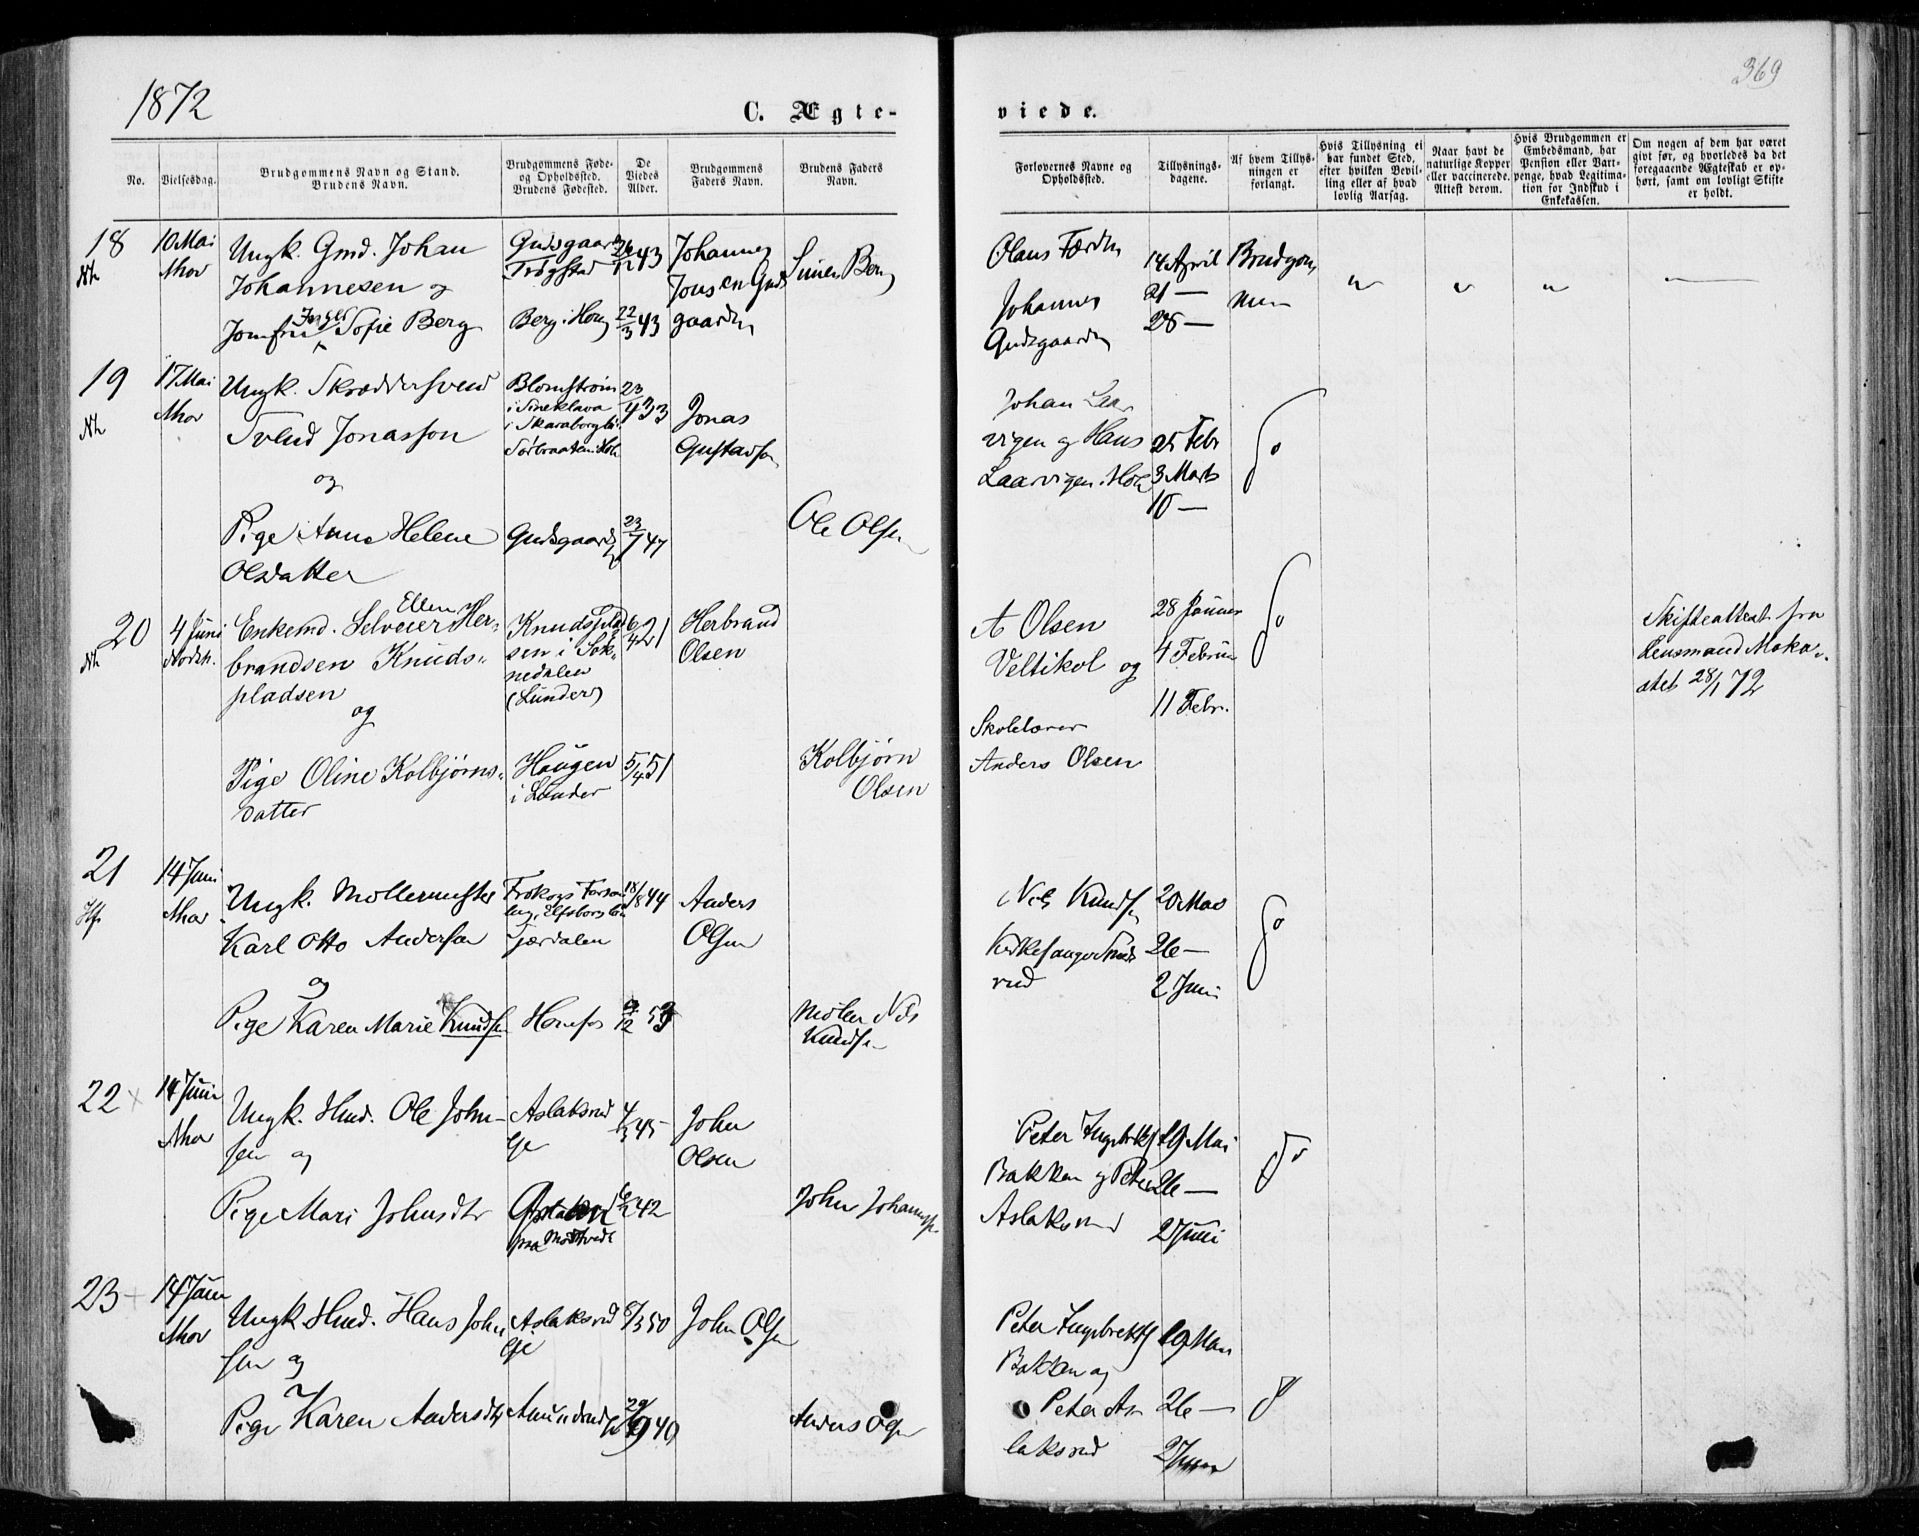 1872
369
C. Ægte-
viede.
No.
Vielsesdag.
Brudgommens Navn og Stand.
Brudens Navn.
Brudgommens Føde-
og Opholdssted.
Brudens Fødested.
De
Viedes
Alder.
Brudgommens
Faders Navn.
Brudens Faders
Navn.
Forlovernes Navne og
Opholdssted.
Tillysnings-
dagene.
Af hvem Tillys-
ningen er
forlangt.
Hvis Tillysning ei
har fundet Sted,
efter hvilken Bevil-
ling eller af hvad
lovlig Aarsag.
Naar havt de
naturlige Kopper
eller vaccinerede.
Attest derom.
Hvis Brudgommen er
Embedsmand, har
Pension eller Vart-
penge, hvad Legitima-
tion for Indskud i
Enkekassen.
Om nogen af dem har været
givt før, og hvorledes da det
foregaaende Ægteskab er op-
hørt, samt om lovligt Skifte
er holdt.
18
10 Mai
Nhov
Ungk. Gmd. Johan
Johannesen og
Jomfru Inger Sofie Berg
Gudsgaarden
Trøgstad
Berg i Hong
26/12 43
22/3 43
Johannes
Jonsen Guds
gaarden
Simen Berg
Olaus Færden
Johannes
Gudsgaarden
14 April
21 —
28 —
Brudgom
men
19
17 Mai
Nhov
Ungk. Skræddersvend
Svend Jonasson
og
Pige Anne Helene
Olsdatter
Blomstrøm
i Skaraborgs
Sørbraaten i Hole
Gudsgaarden
23/4 33
23/7 47
Jonas
Gustavsen
Ole Olsen
Johan Laar
vigen og Hans
Laarvigen i Hole
25 Febr
3 Marts
10 —
do
20
4 Juni
Nordh.
Enkemd. Selveier Ellen Her-
brandsen Knuds-
pladsen
og
Pige Oline Kolbjørns-
datter
Knudsplad
sen i Sok-
nedalen
(Lunder)
Haugen
i Lunder
6/4 21
5/4 51
Herbrand
Olsen
Kolbjørn
Olsen
A Olsen
Veltikol og
Skolelærer
Anders Olsen
28 Januar
4 Februar
11 Febr.
do
Skifteattest fra
Lensmand Moka-
stet 28/1 72
21
14 Juni
Nhov
Ungk. Møllermester
Karl Otto Anderson
og
Pige Karen Marie Knudsen
Tjærdalen
Hønefos
18/8 44
9/12 53
Anders
Olsen
Møller Nils
Knudsen
Nils Knudsen
Kirkesanger
rud
20 Mai
26 —
2 Juni
do
22
14 Juni
Nhov
Ungk. Hmd. Ole John-
sen og
Pige Mari Johnsdtr
Aslaksrud
Eje
4/3 45
42
John
Olsen
John Johannesen
Peter Ingebrikts
Bakken og Peter
Aslaksrud
19 Mai
26 —
2 Juni
do
23
14 Juni
Nhov
Ungk. Hmd. Hans John
sen og
Pige Karen Andersdtr
Aslaksrud
Eje
Amundrud
8/3 50
29/9 49
John Olsen
Anders Olsen
Peter Ingebrikts
Bakken og
Peter As
laksrud
19 Mai
26 —
2 Juni
do